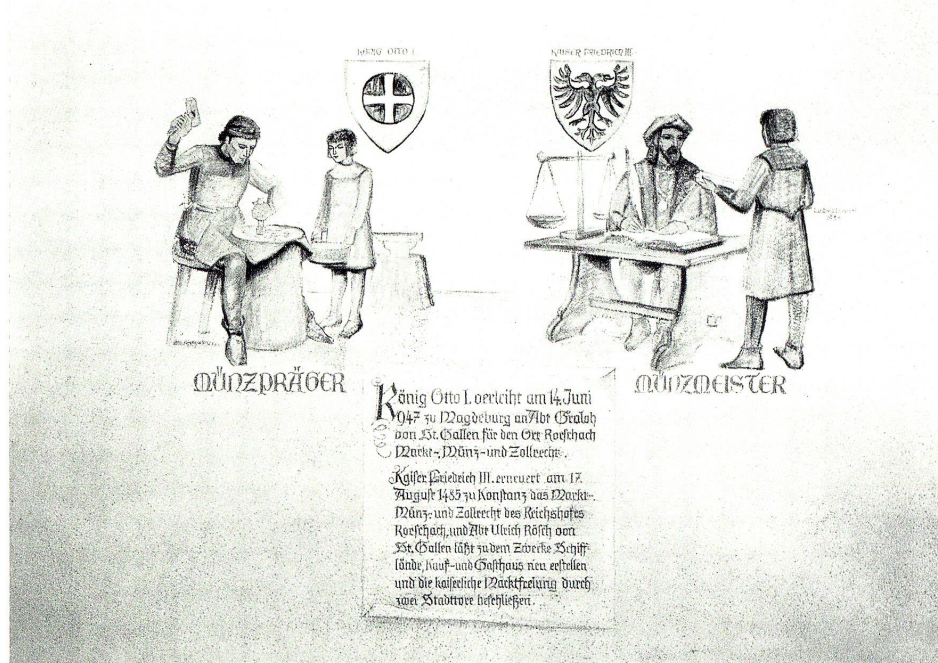 KÖNIG OTTO I.
KAISER FRIEDRICH III.
MÜNZPRÄGER
MÜNZMEISTER
König Otto I. verleiht am 14. Juni
947 zu Magdeburg an Abt Graloh
von St. Gallen für den Ort Rorschach
Markt-, Münz- und Zollrecht.
Kaiser Friedrich III. erneuert am 17.
August 1485 zu Konstanz das Markt-,
Münz- und Zollrecht des Reichshofes
Rorschach, und Abt Ulrich Rösch von
St. Gallen läßt zu dem Zwecke Schiff-
lände, Kauf- und Gasthaus neu erstellen
und die kaiserliche Marktfreiung durch
zwei Stadttore beschließen.